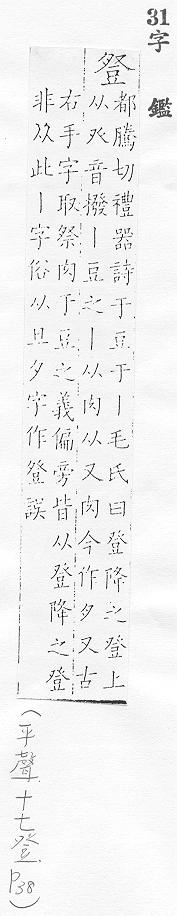 31字鑑
豋
都騰切禮器詩于豆于丨毛氏曰登降之登上
从癶音撥丨豆之丨从肉从又肉今作夕又古
右手字取祭肉于豆之義偏旁皆从登降之登
非从此丨字俗从且夕字作登誤
(平聲 十七登 P38)